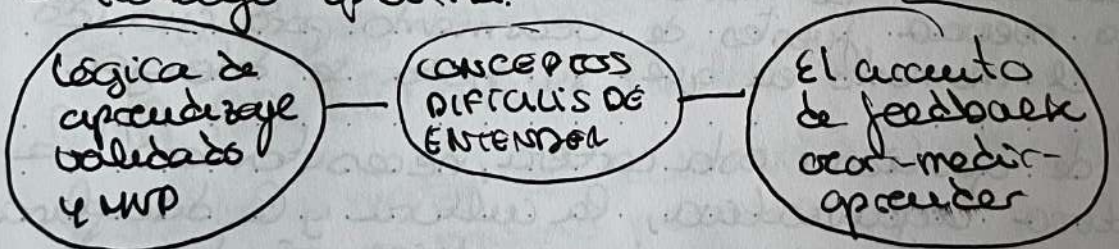 Lógica de
aprendizaje
validado
y MVP
CONCEPTOS
DIFICILES DE
ENTENDER
El
de feedback
crear-medir-
aprender